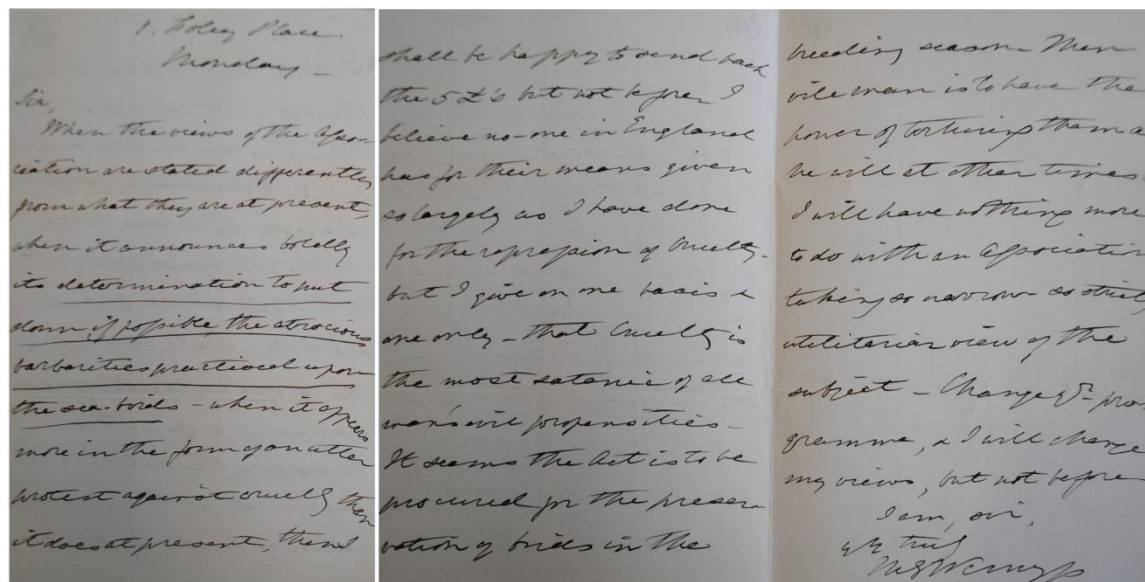 1. Foley Place
Monday –
Sir,
When the views of the Asso-
ciation are stated differently
from what they are at present,
when it announces boldly
its determination to put
down, if possible, the atrocious
barbarities practised upon
the sea-birds – when it appears
more in the form of an utter
protest against cruelty than
it does at present, then I
shall be happy to send back
the 5 £'s but not before. I
believe no-one in England
has for their means given
so largely as I have done
for the repression of Cruelty-
but I give on one basis &
one only – that Cruelty is
the most satanic of all
man's evil propensities –
It seems the Act is to be
procured for the preser
vation of birds in the
breeding season. Then
vile man is to have the
power of torturing them a
he will at other times.
I will have nothing more
to do with an Association
taking so narrow so strictly
utilitarian view of the
subject – Change yr pro-
gramme, & I will change
my views, but not before
I am, sir,
truly